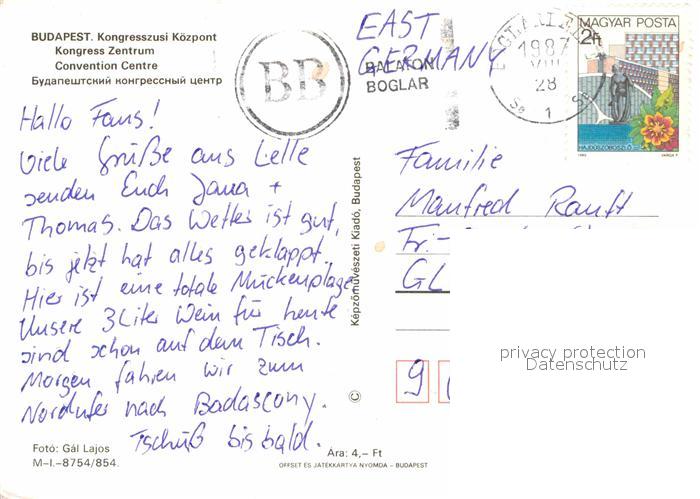 BUDAPEST. Kongresszusi Központ
Kongress Zentrum
Convention Centre
Будапештский конгрессный центр
BB
EAST
GERMANY
BALATON
BOGLAR
1987
VIII
28
1
MAGYAR POSTA
2Ft
HAJDÚSZOBOSZLÓ
Hallo Fans!
Viele Grüße aus Lelle
senden Euch Jana +
Thomas. Das Wetter ist gut,
bis jetzt hat alles geklappt.
Hier ist eine totale Mückenplage
Unsere 3 Liter Wein für heute
sind schon auf dem Tisch.
Morgen fahren wir zum
Nordufer nach Badascony.
Tschüß bis bald.
Familie
Manfred Ranft
Fr.-
GL
9
Képzőművészeti Kiadó, Budapest
©
privacy protection
Datenschutz
Fotó: Gál Lajos
M–I.–8754/854.
Ára: 4,– Ft
OFFSET ÉS JÁTÉKKÁRTYA NYOMDA – BUDAPEST